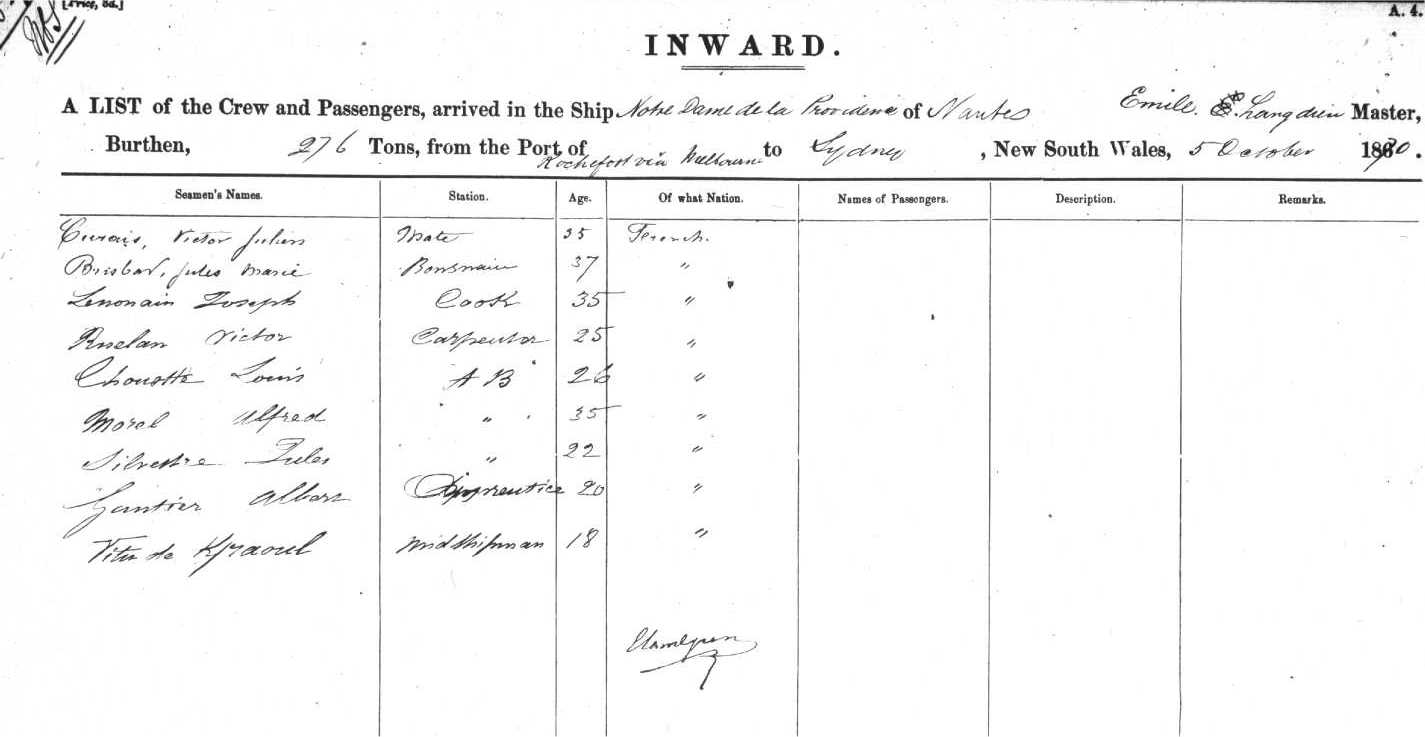 [Price, 3d.]
A. 4.
INWARD.
A LIST of the Crew and Passengers, arrived in the Ship Notre Dame de la Providence of Nantes Emile Master,
Burthen, 276 Tons, from the Port of Rochefort via Melbourne to Sydney, New South Wales, 5 October 1870.
Seamen's Names. Station. Age. Of what Nation. Names of Passengers. Description. Remarks.
Victor Julien Mate 35 French.
Jules Marie 37 "
Lenonain Joseph Cook 35 "
Ruelan Victor Carpenter 25 "
Chouette Louis A B 26 "
Morel Alfred " 35 "
Silvestre Jules " 22 "
Gautier Albert Apprentice 20 "
de Midshipman 18 "